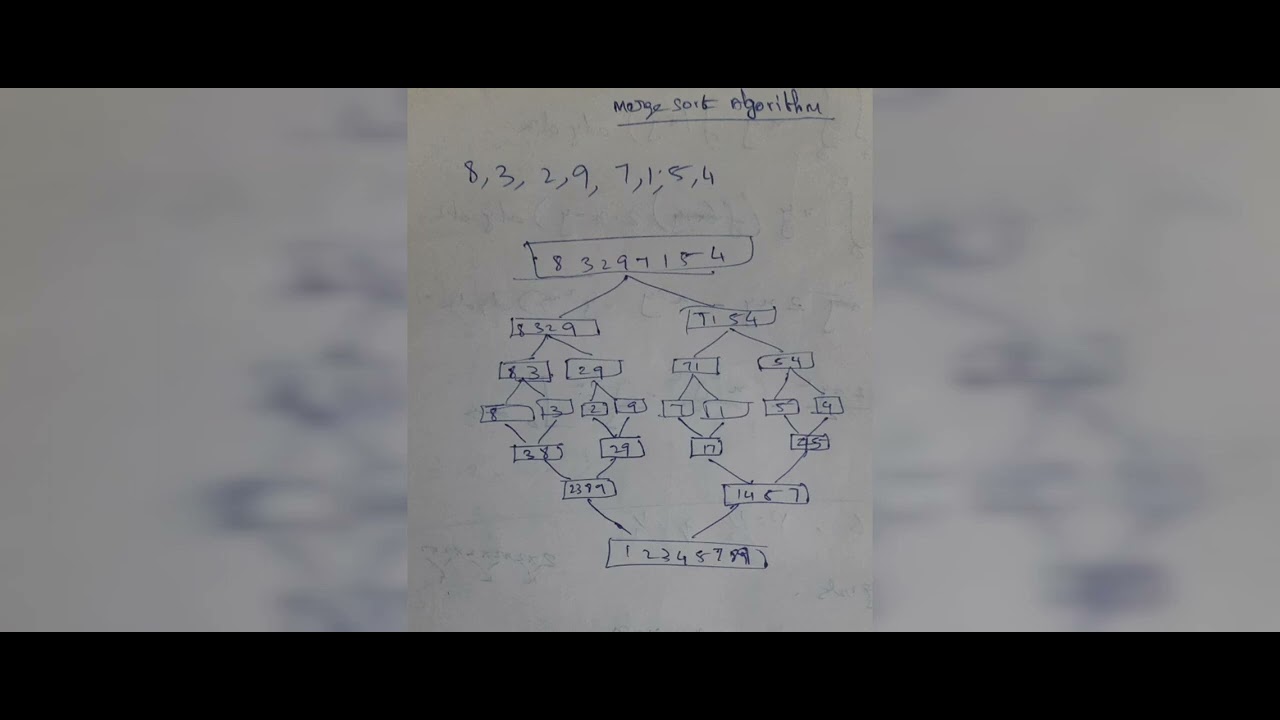 Merge Sort Algorithm
8, 3, 2, 9, 7, 1, 5, 4
8 3 2 9 7 1 5 4
8 3 2 9 7 1 5 4
8 3 2 9 7 1 5 4
8 3 2 9 7 1 5 4
3 8 2 9 1 7 4 5
2 3 8 9 1 4 5 7
1 2 3 4 5 7 8 9